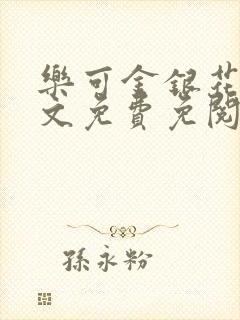 樂可金銀花
文免費免閱
孫永粉